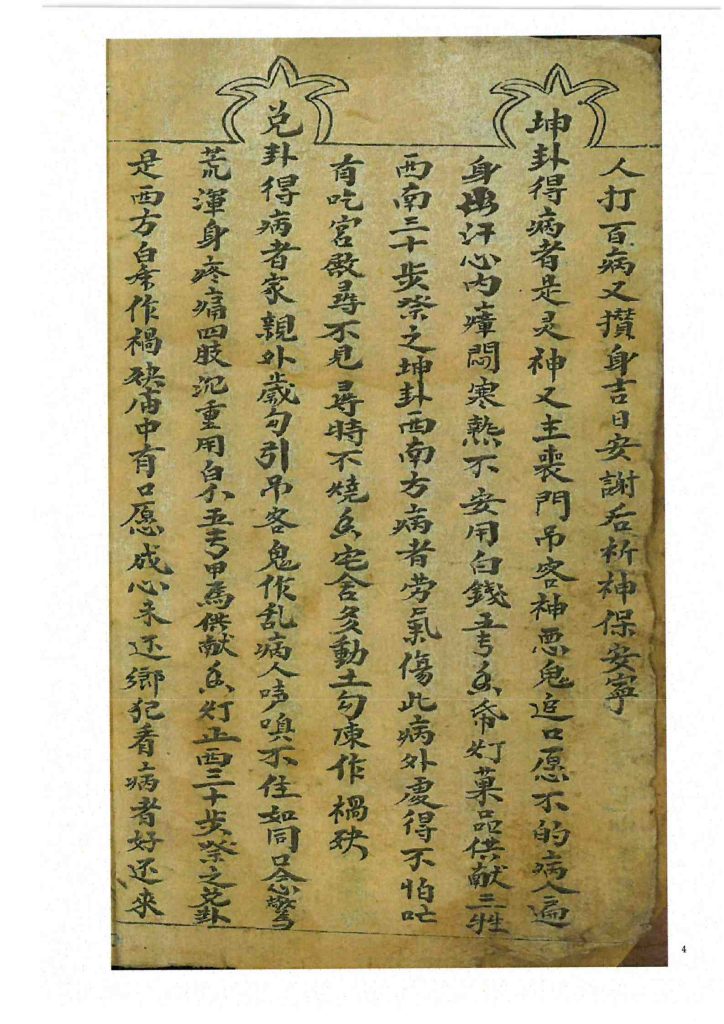 人打百病又攅身吉日安謝后祈神保安寧
坤卦得病者是灵神又主喪門吊客神悪鬼追口愿不的病人遍
身出汗心内瘴悶寒熱不安用白錢五灯菓品供献三牲
西南三十步祭之坤卦西南方病者劳氣傷此病外處得不怕忙
有吃宮殿尋不見尋時不燒香宅舍多動土勾陳作禍殃
兑卦得病者家親外歳勾引吊客鬼作乱病人声嗅不住如同口念驚
荒渾身疼痛四肢沉重用白五甲馬供献香灯正西三十步祭之兑卦
是西方白作禍殃庙中有口愿成心未还鄉犯看病者好还来
4